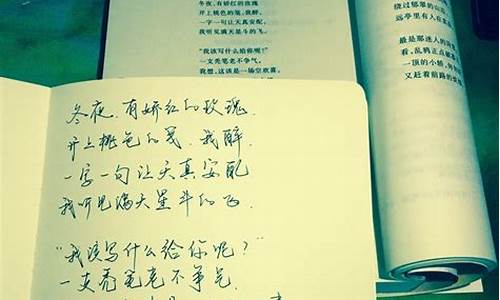 冬夜,有娇红的玫瑰
开上桃色的笺,我醉,
一字一句让天真安配,
我听见满天星斗的飞。
“我该写什么给你呢?”
一支秃笔老不争气,
我想,这该是一场空欢喜。
绕过郁翠的山
远亭里有人在
最是那迷人的
看,乱鸦正点破
一顶的小轿,
又赶着前路的
冬夜、有娇红的玫瑰、
开上桃色的笺、我醉、
一字一句让天真安配
我听见满天星斗的飞、
“我该写什么给你呢?”
一支秃笔老不争气、